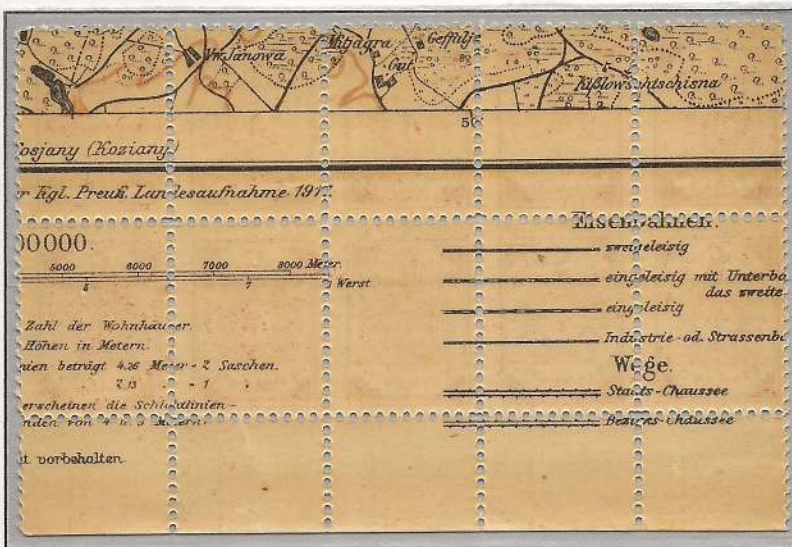 Gut
50
Kosjany (Koziany)
r Kgl. Preuß. Landesaufnahme 1917.
00000.
5000 6000 7000 8000 Meter.
7 Werst
Zahl der Wohnhäuser.
Höhen in Metern.
nien beträgt 4,26 Meter = 2 Saschen.
2,13 " = 1 "
erscheinen die Schichtlinien
t vorbehalten.
Eisenbahnen.
zweigeleisig
eingeleisig mit Unterba
das zweite
eingeleisig
Industrie- od. Strassenba
Wege.
Staats-Chaussee
Bezirks-Chaussee